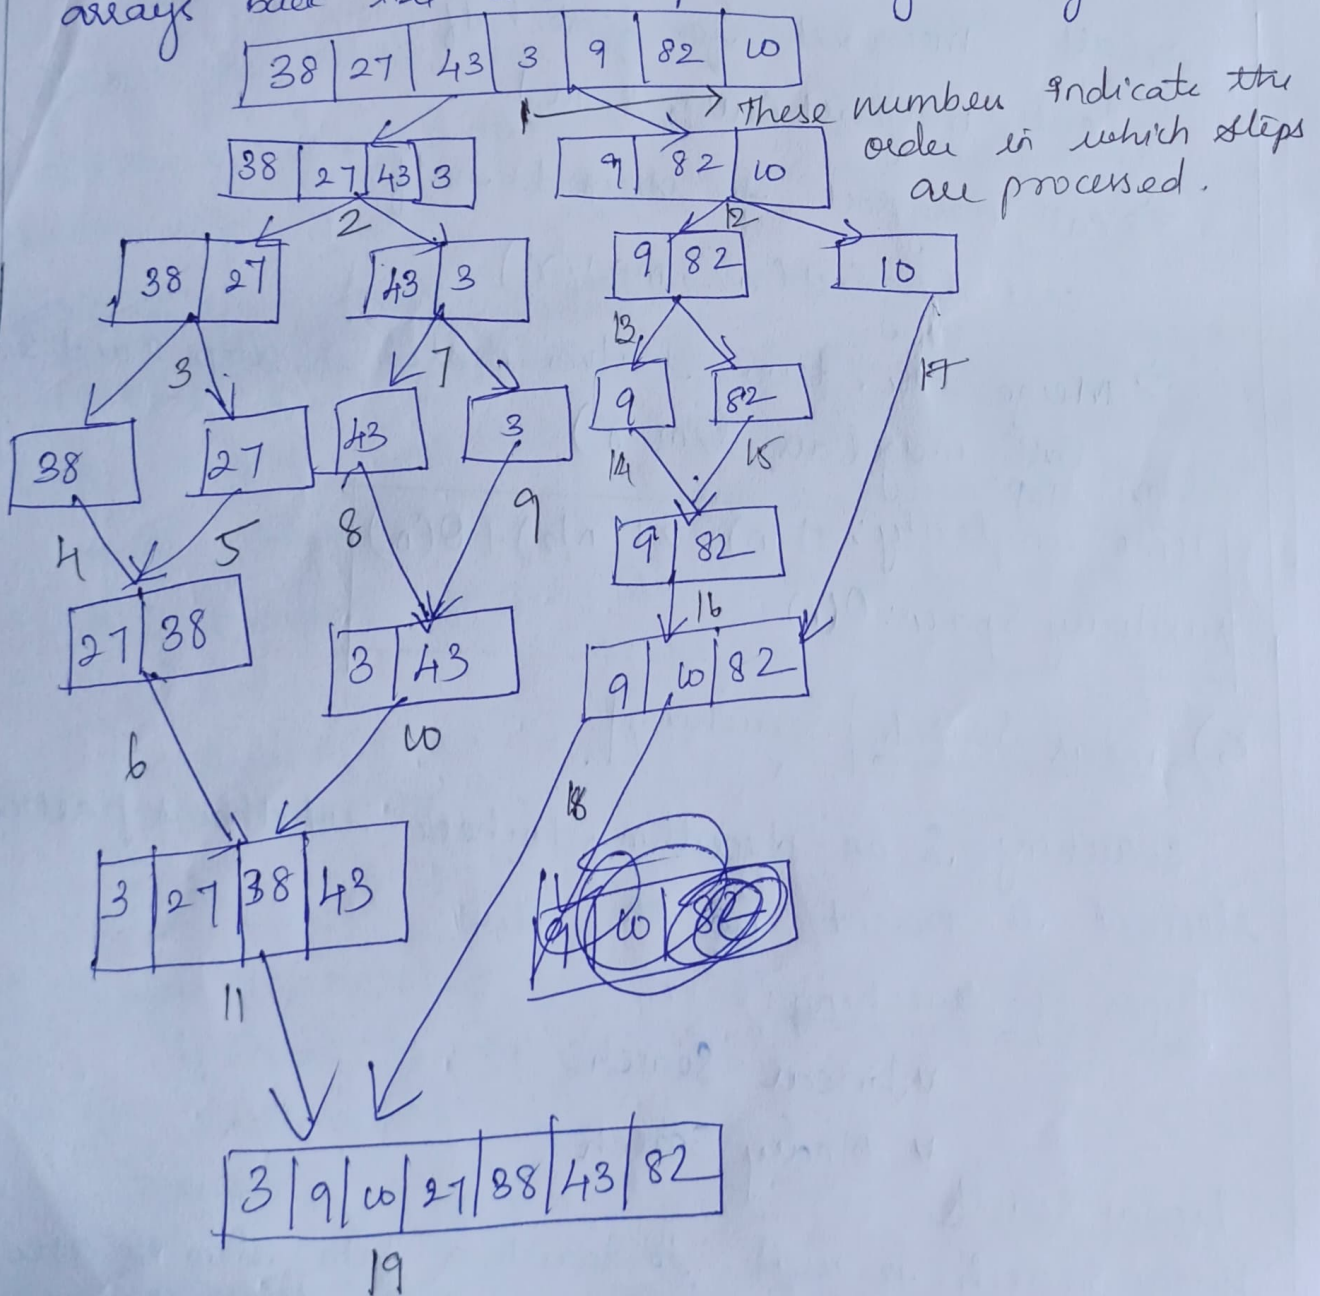 arrays back
38 27 43 3 9 82 10
1 These number indicate the
order in which steps
are processed.
38 27 43 3 9 82 10
2 12
38 27 43 3 9 82 10
3 7 13 17
38 27 43 3 9 82
4 5 8 9 14 15
9 82
27 38 3 43 16
9 10 82
6 10 18
3 27 38 43 9 10 82
11
3 9 10 27 38 43 82
19